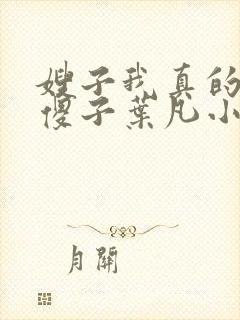 嫂子我真的
傻子葉凡小
月關